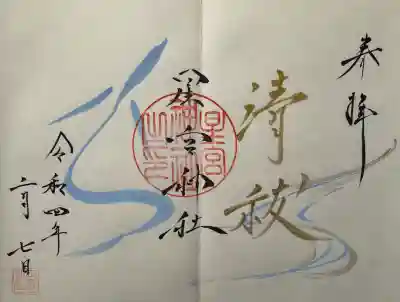 奉拝
清祓
星宮神社
星宮神社之印
令和四年
月七日